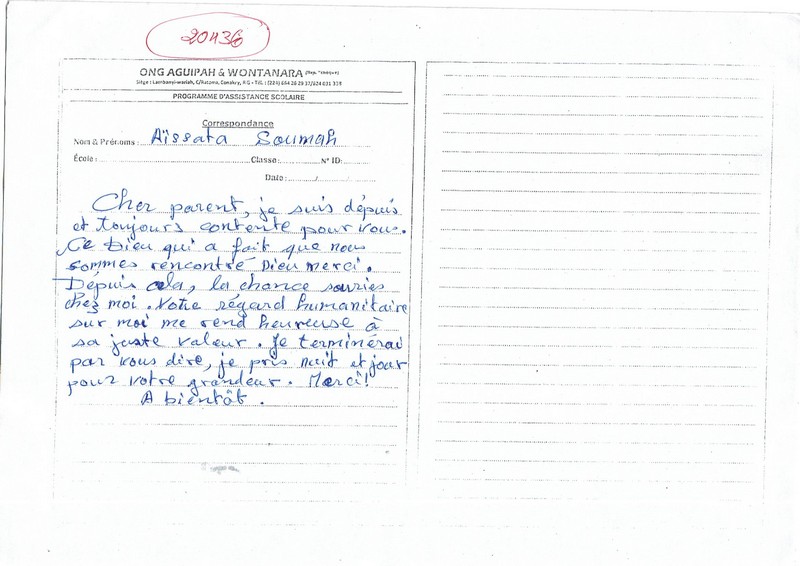 20436
ONG AGUIPAH & WONTANARA
PROGRAMME D'ASSISTANCE SCOLAIRE
Correspondance
Nom & Prénoms : Aïssata Soumah
École : Classe: N° ID:
Date: /
Cher parent, je suis dépuis
et toujours contente pour vous.
Ce Dieu qui a fait que nous
sommes rencontré Dieu merci.
Dépuis cela, la chance souries
chez moi. Votre régard humanitaire
sur moi me rend heureuse à
sa juste valeur. Je terminerai
par vous dire, je pris nuit et jour
pour votre grandeur. Merci!
A bientôt.